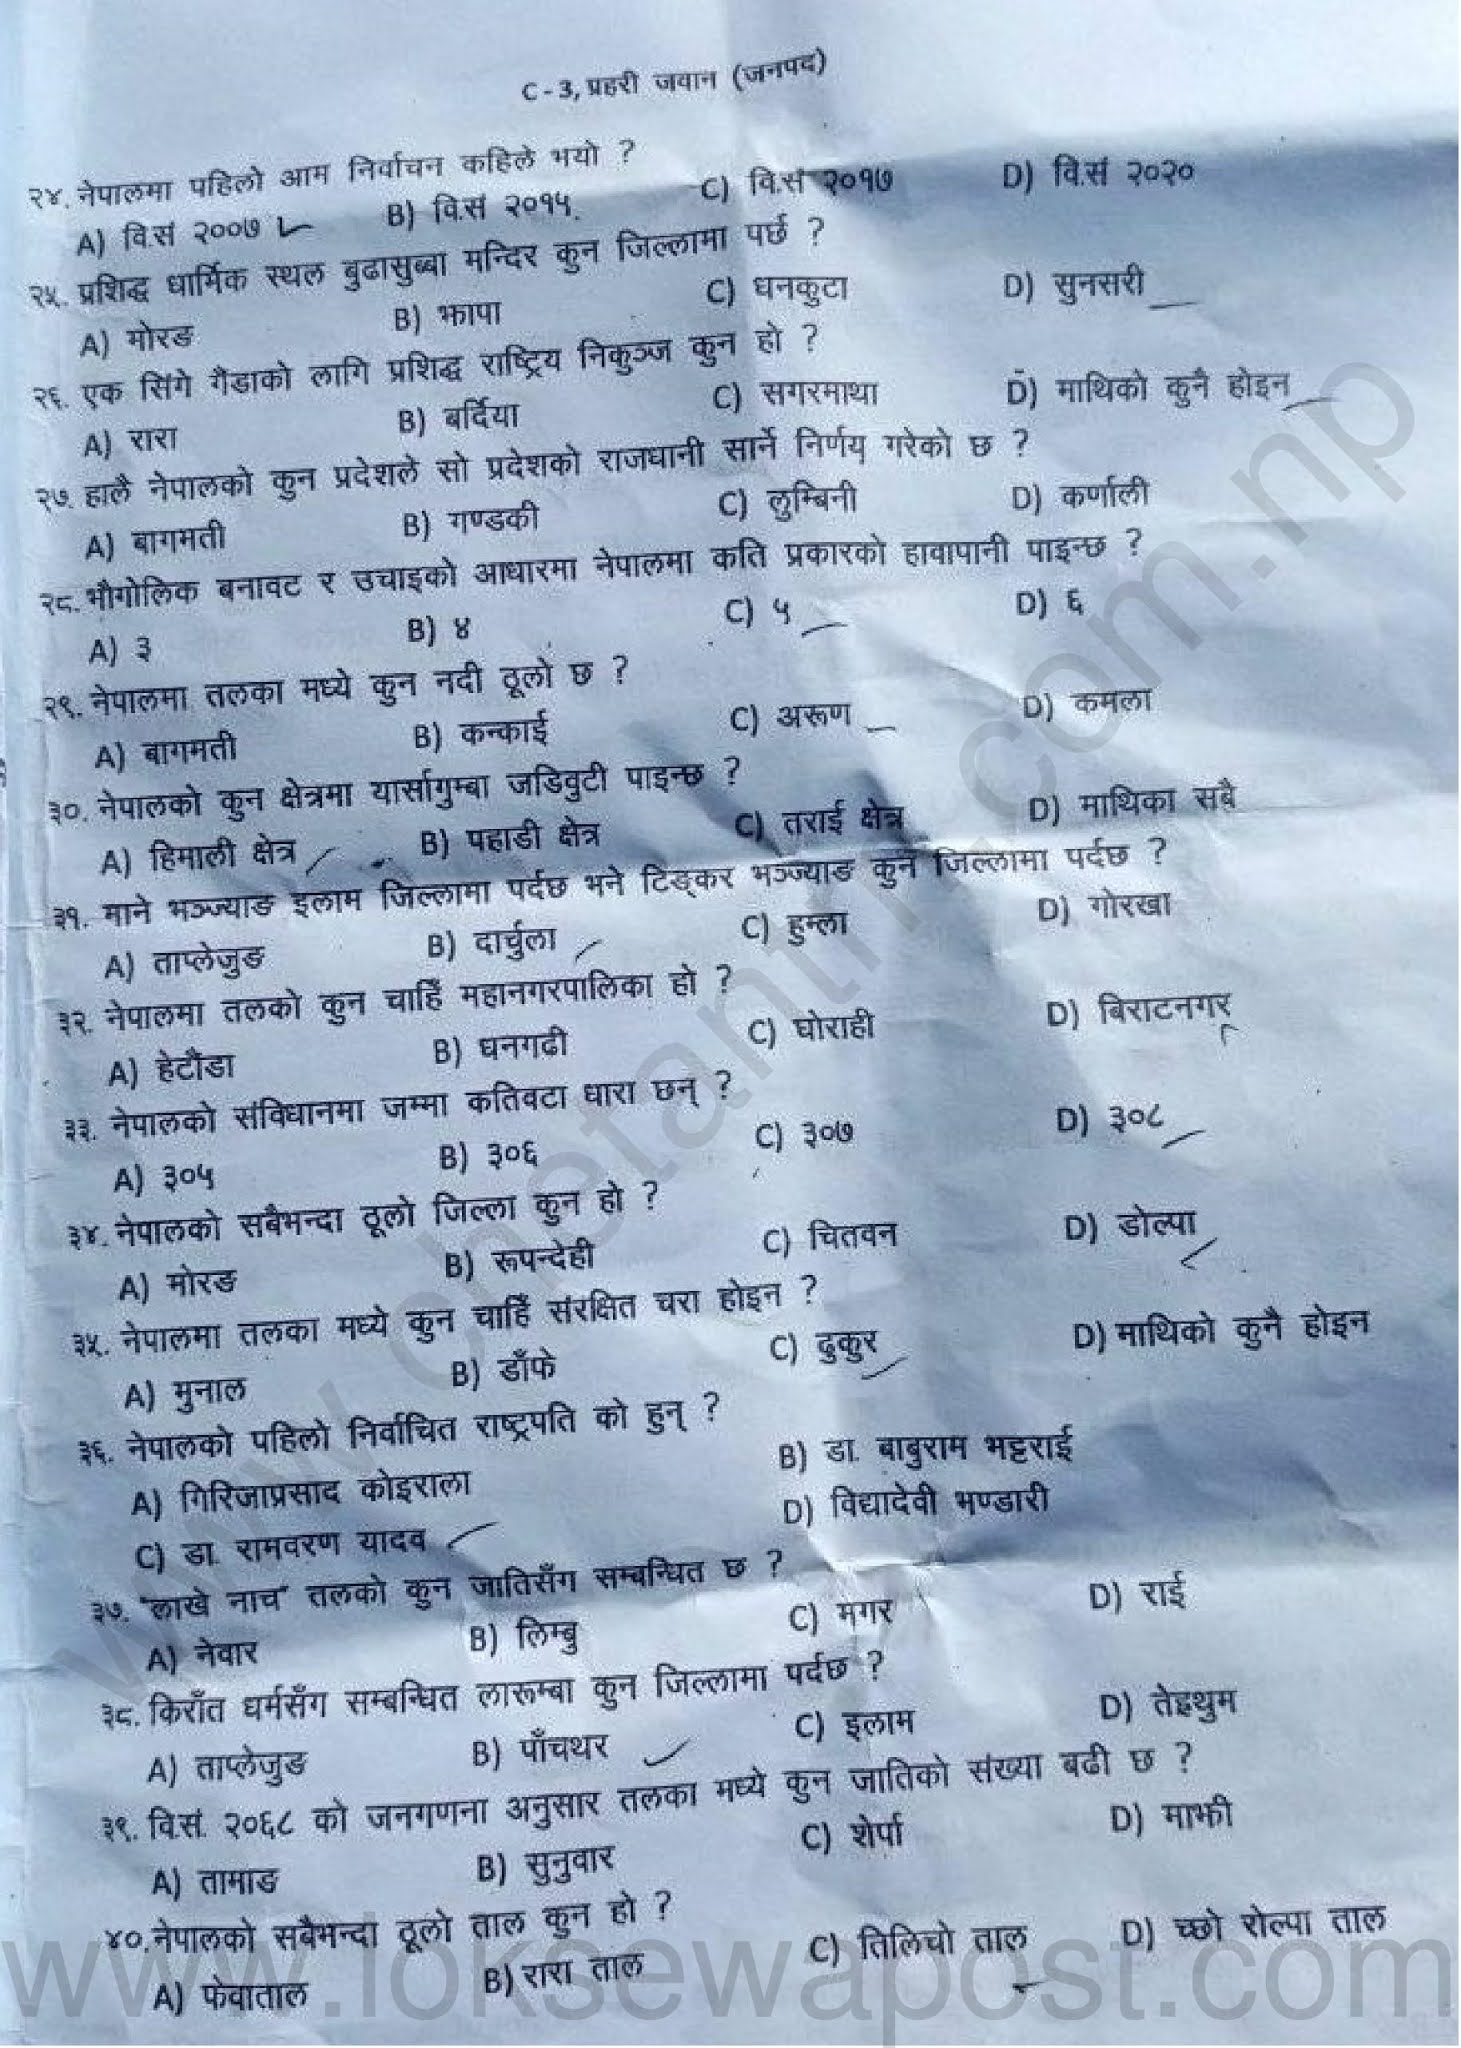 C - 3, प्रहरी जवान (जनपद)
२४. नेपालमा पहिलो आम निर्वाचन कहिले भयो ?
A) वि.सं २००७ B) वि.सं २०१५ C) वि.सं २०१७ D) वि.सं २०२०
२५. प्रशिद्ध धार्मिक स्थल बुढासुब्बा मन्दिर कुन जिल्लामा पर्छ ?
A) मोरङ B) झापा C) धनकुटा D) सुनसरी
२६. एक सिंगे गैडाको लागि प्रशिद्ध राष्ट्रिय निकुञ्ज कुन हो ?
A) रारा B) बर्दिया C) सगरमाथा D) माथिको कुनै होइन
२७. हालै नेपालको कुन प्रदेशले सो प्रदेशको राजधानी सार्ने निर्णय गरेको छ ?
A) बागमती B) गण्डकी C) लुम्बिनी D) कर्णाली
२८. भौगोलिक बनावट र उचाइको आधारमा नेपालमा कति प्रकारको हावापानी पाइन्छ ?
A) ३ B) ४ C) ५ D) ६
२९. नेपालमा तलका मध्ये कुन नदी ठूलो छ ?
A) बागमती B) कन्काई C) अरूण D) कमला
३०. नेपालको कुन क्षेत्रमा यार्सागुम्बा जडिवुटी पाइन्छ ?
A) हिमाली क्षेत्र B) पहाडी क्षेत्र C) तराई क्षेत्र D) माथिका सबै
३१. माने भञ्ज्याङ इलाम जिल्लामा पर्दछ भने टिङ्कर भञ्ज्याङ कुन जिल्लामा पर्दछ ?
A) ताप्लेजुङ B) दार्चुला C) हुम्ला D) गोरखा
३२. नेपालमा तलको कुन चाहिँ महानगरपालिका हो ?
A) हेटौंडा B) धनगढी C) घोराही D) बिराटनगर
३३. नेपालको संविधानमा जम्मा कतिवटा धारा छन् ?
A) ३०५ B) ३०६ C) ३०७ D) ३०८
३४. नेपालको सबैभन्दा ठूलो जिल्ला कुन हो ?
A) मोरङ B) रूपन्देही C) चितवन D) डोल्पा
३५. नेपालमा तलका मध्ये कुन चाहिँ संरक्षित चरा होइन ?
A) मुनाल B) डाँफे C) ढुकुर D) माथिको कुनै होइन
३६. नेपालको पहिलो निर्वाचित राष्ट्रपति को हुन् ?
A) गिरिजाप्रसाद कोइराला B) डा. बाबुराम भट्टराई
C) डा. रामवरण यादव D) विद्यादेवी भण्डारी
३७. "लाखे नाच" तलको कुन जातिसँग सम्बन्धित छ ?
A) नेवार B) लिम्बु C) मगर D) राई
३८. किराँत धर्मसँग सम्बन्धित लारूम्बा कुन जिल्लामा पर्दछ ?
A) ताप्लेजुङ B) पाँचथर C) इलाम D) तेह्रथुम
३९. वि.सं. २०६८ को जनगणना अनुसार तलका मध्ये कुन जातिको संख्या बढी छ ?
A) तामाङ B) सुनुवार C) शेर्पा D) माझी
४०. नेपालको सबैभन्दा ठूलो ताल कुन हो ?
A) फेवाताल B) रारा ताल C) तिलिचो ताल D) च्छो रोल्पा ताल
www.chetantm.com.np
www.loksewapost.com